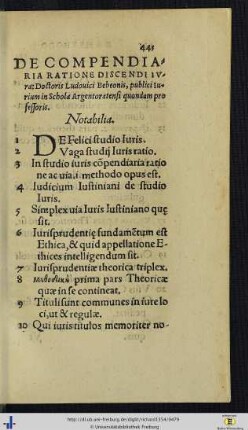 441
DE COMPENDIA-
RIA RATIONE DISCENDI IV-
ra: Doctoris Ludouici Bebeonis, publici iu-
rium in Schola Argentoratensi quondam pro
fessoris.
Notabilia.
1 DE Felici studio Iuris.
2 Vaga studij Iuris ratio.
3 In studio iuris cõpendiaria ratio
ne ac via, i methodo opus est.
4 Iudicium Iustiniani de studio
Iuris.
5 Simplex uia Iuris Iustiniano quę
sit.
6 Iurisprudentię fundamẽtum est
Ethica, & quid appellatione E-
thices intelligendum sit.
7 Iurisprudentiæ theorica triplex.
8 prima pars Theoricæ
quæ in se contineat.
9 Tituli sunt communes in iure lo
ci, ut & regulæ.
10 Qui iuris titulos memoriter no-
© Universitätsbibliothek Freiburg